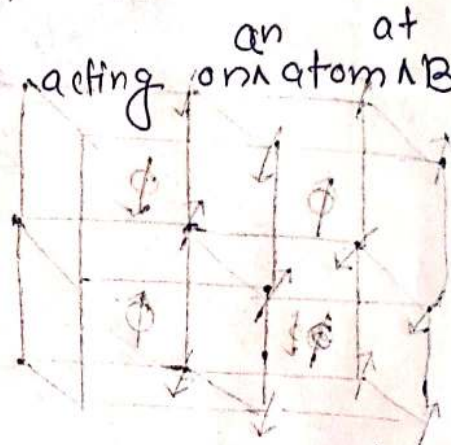 an at
acting on^ atom ^ B